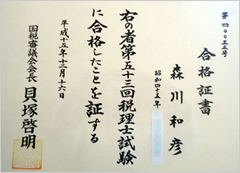 第四〇〇五五号
合格証書
森川和彦
昭和四十五年
右の者第五十三回税理士試験
に合格したことを証する
平成十五年十二月十六日
国税審議会会長 貝塚啓明